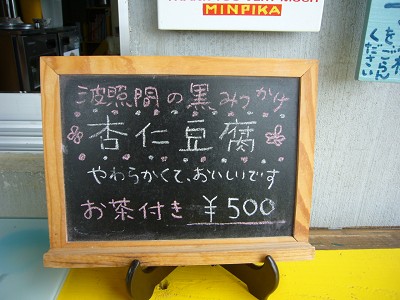 THANK YOU VERY MUCH
MINPIKA
波照間の黒みつかけ
杏仁豆腐
やわらかくて、おいしいです
お茶付き ¥500
をごらん
ください